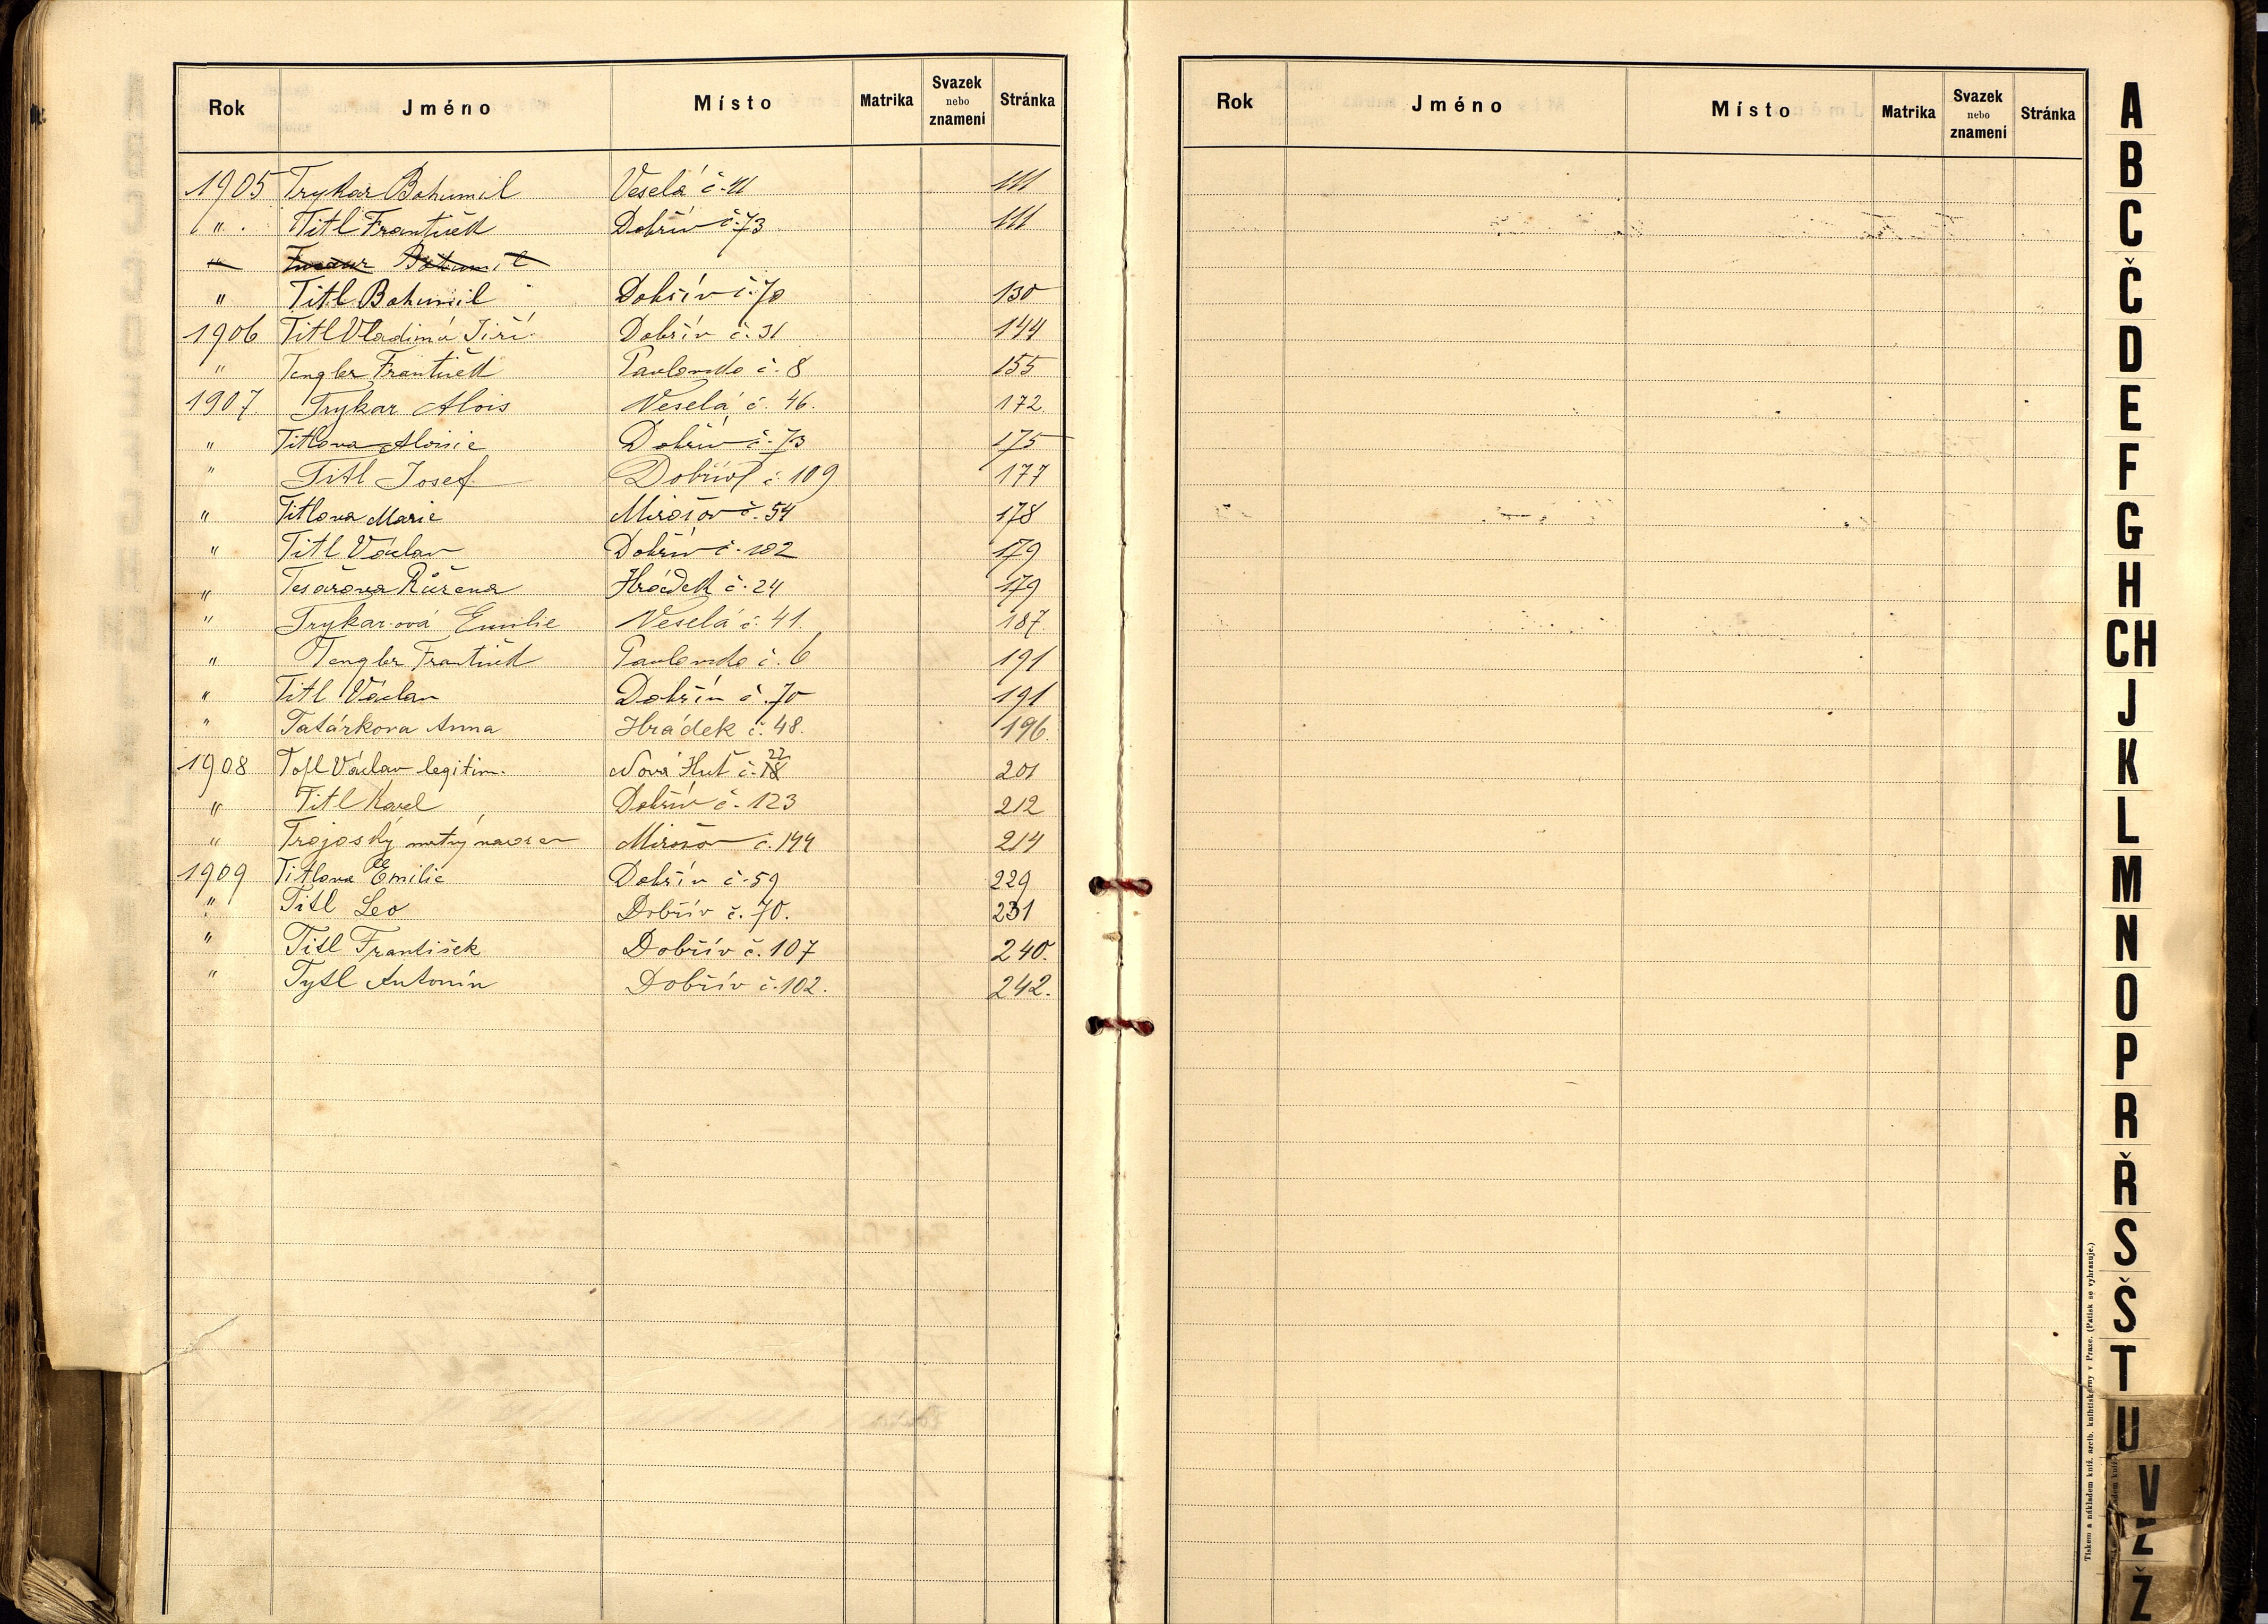 Rok Jméno Místo Matrika Svazek nebo znamení Stránka
1905 Trykar Bohumil Veselá č. 41 111
" Titl František Dobřív č. 73 111
" Bohumil
" Titl Bohumil Dobřív č. 70 130
1906 Titl Vladimír Jiří Dobřív č. 31 144
" Tengler František Pavlovsko č. 8 155
1907 Trykar Alois Veselá č. 46. 172.
" Titlova Aloisie Dobřív č. 73 175
" Titl Josef Dobřív č. 109 177
" Titlova Marie Mirošov č. 54 178
" Titl Václav Dobřív č. 102 179
" Tesařova Růžena Hrádek č. 24 179
" Trykar-ová Emilie Veselá č. 41. 187.
" Tengler František Pavlovsko č. 6 191
" Titl Václav Dobřív č. 70 191
" Tatárkova Anna Hrádek č. 48. 196.
1908 Tofl Václav legitim. Nová Huť č. 18 22 201
" Titl Karel Dobřív č. 123 212
" Trojoský mrtvý narozen Mirošov č. 144 214
1909 Titlova Emilie Dobřív č. 59 229
" Titl Leo Dobřív č. 70. 231
" Titl František Dobřív č. 107 240.
" Tytl Antonín Dobřív č. 102. 242.
Rok Jméno Místo Matrika Svazek nebo znamení Stránka
A
B
C
Č
D
E
F
G
H
CH
J
K
L
M
N
O
P
R
Ř
S
Š
T
U
V
Z
Ž
Tiskem a nákladem kníž. arcib. knihtiskárny v Praze. (Patisk se vyhrazuje.)